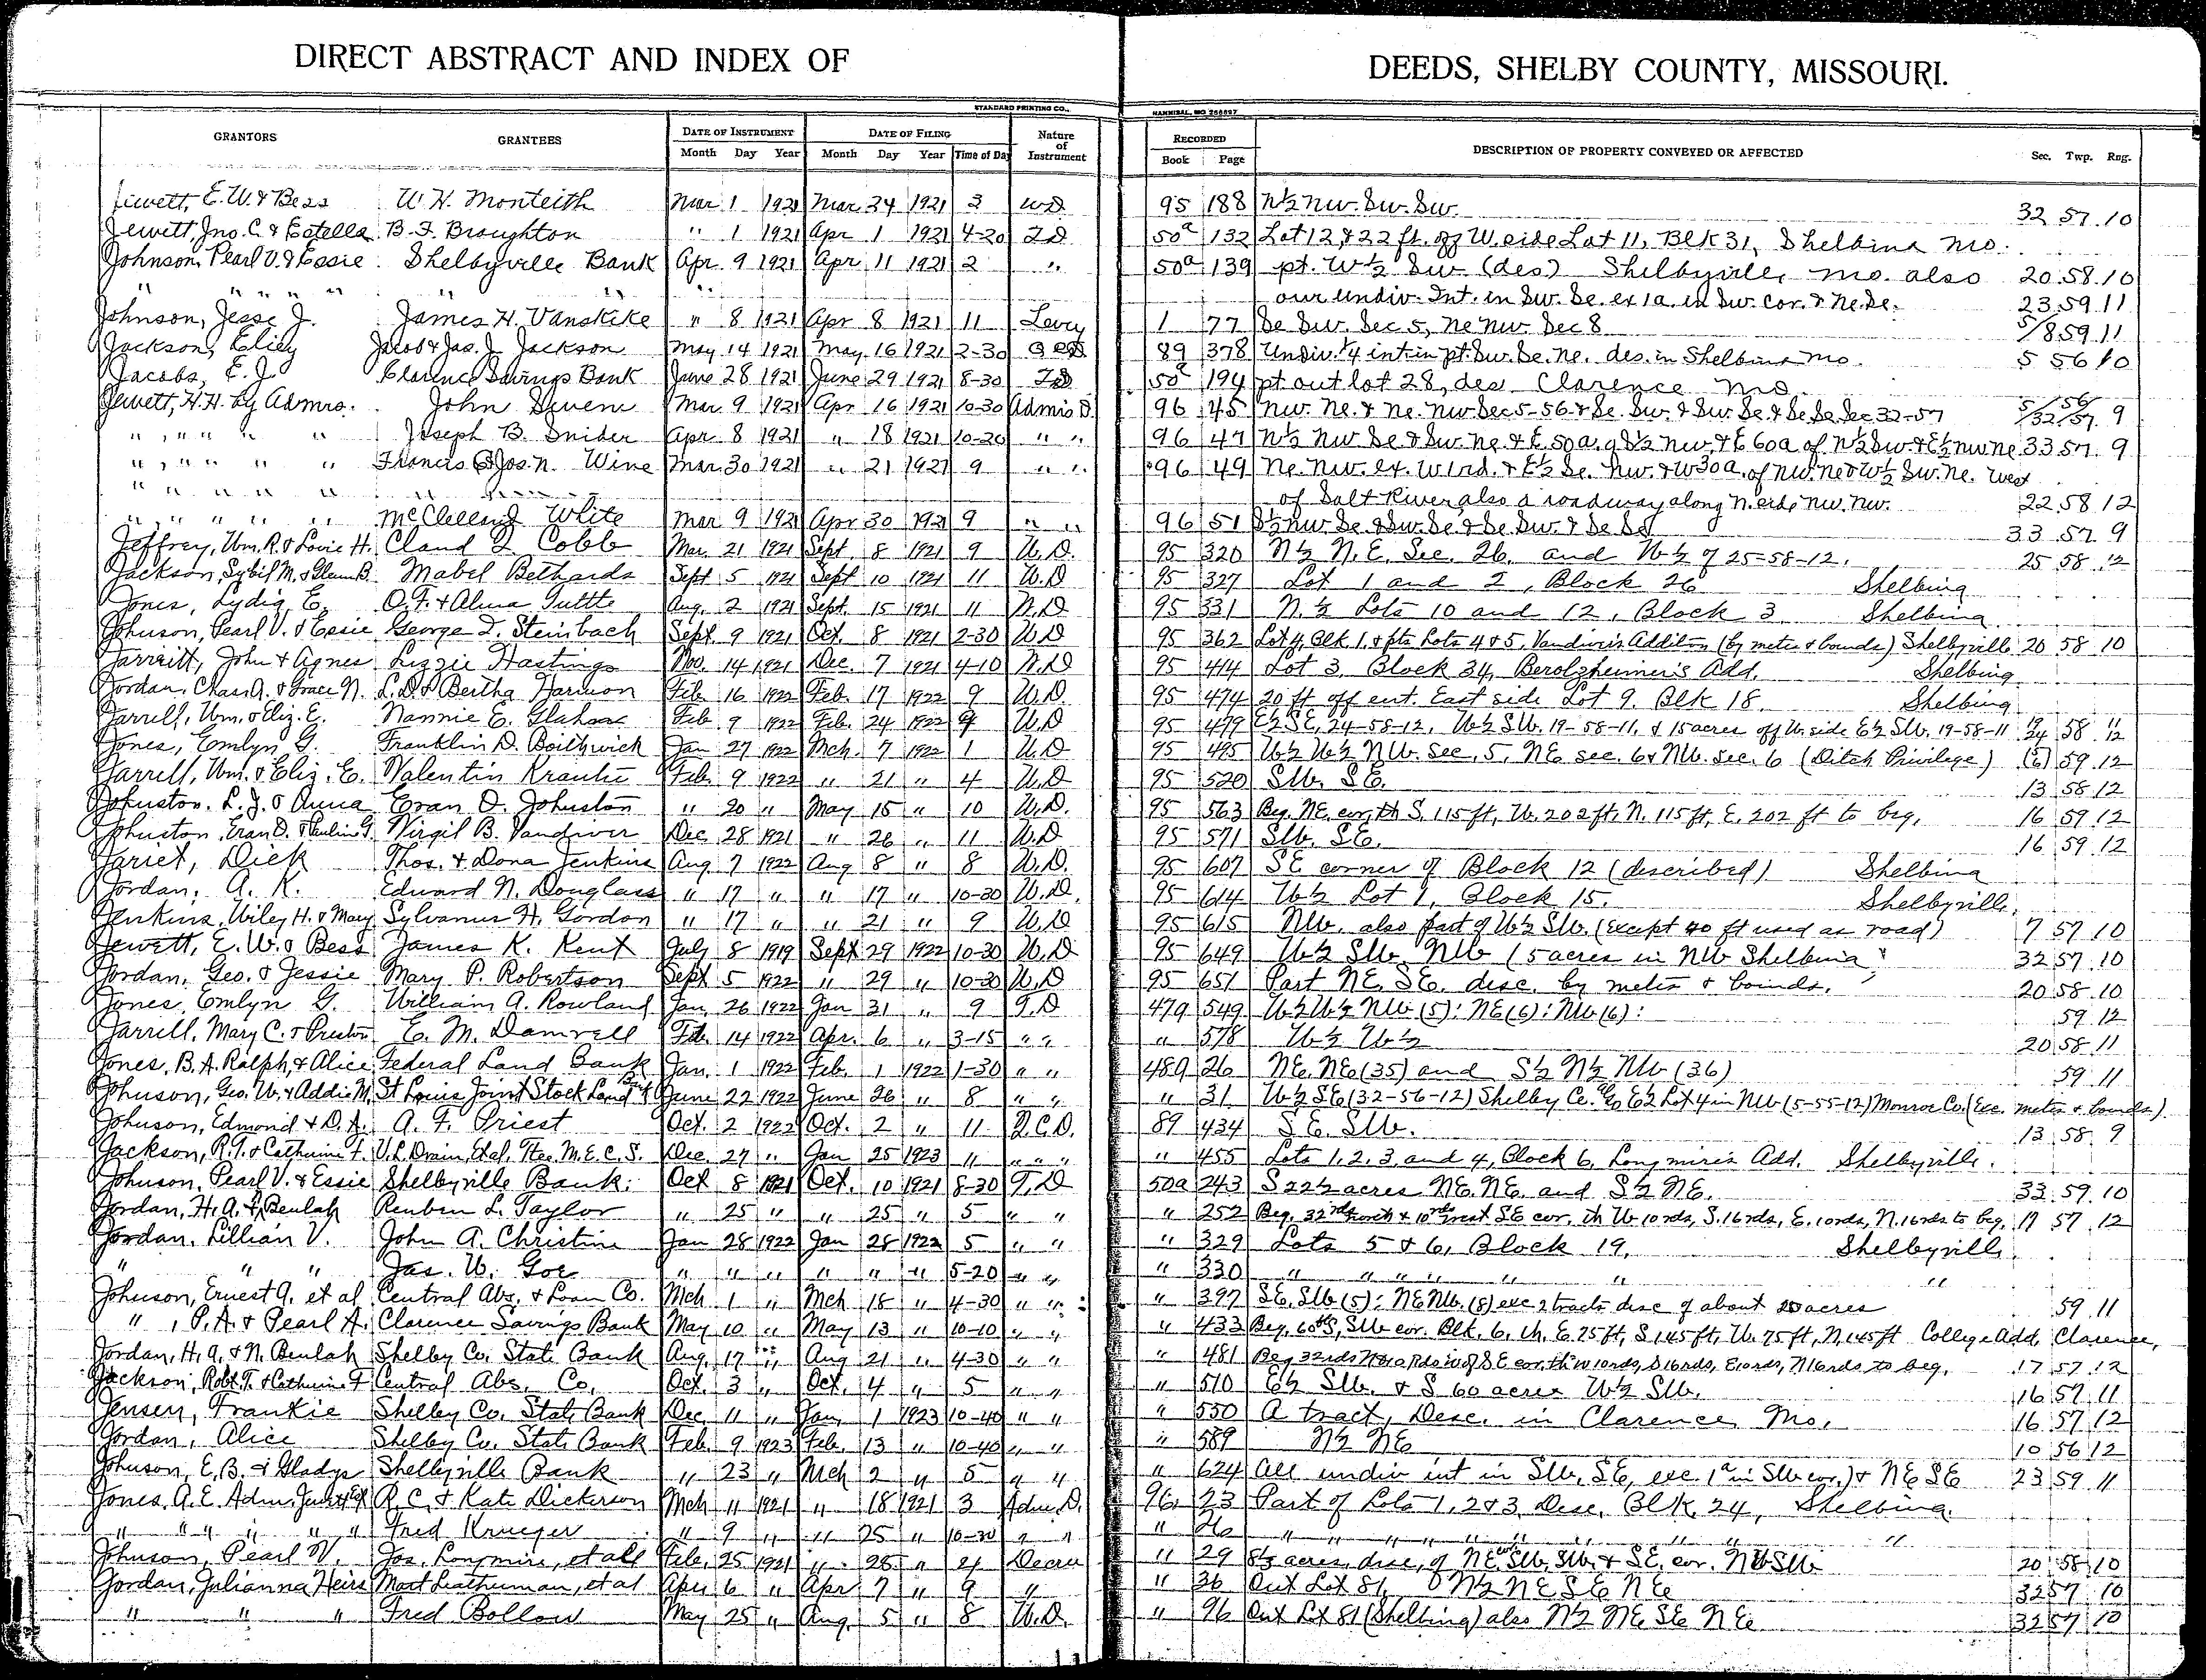 DIRECT ABSTRACT AND INDEX OF DEEDS, SHELBY COUNTY, MISSOURI.
STANDARD PRINTING CO., HANNIBAL, MO
GRANTORS GRANTEES DATE OF INSTRUMENT DATE OF FILING Nature of Instrument RECORDED DESCRIPTION OF PROPERTY CONVEYED OR AFFECTED Sec. Twp. Rng.
Month Day Year Month Day Year Time of Day Book Page
Jewett, E. W. & Bess W. H. Monteith Mar 1 1921 Mar 24 1921 3 WD 95 188 N½ NW. SW. SW. 32 57 10
Jewett, Jno. C. & Estella B. F. Broughton " 1 1921 Apr 1 1921 4-20 TD 50a 132 Lot 12 & 22 ft. off W. side Lot 11, Blk 31, Shelbina Mo.
Johnson, Pearl V. & Essie Shelbyville Bank Apr 9 1921 Apr 11 1921 2 " 50a 139 pt. W½ SW (des) Shelbyville, Mo. also 20 58 10
" " " " " " " " our undiv. Int. in SW. SE. ex 1a. in SW. cor. & NE. SE. 23 59 11
Johnson, Jesse J. James H. Vanskike " 8 1921 Apr 8 1921 11 Levy 1 77 SE SW. Sec 5, NE NW Sec 8 5/8 59 11
Jackson, Jacob & Jas. J. Jackson May 14 1921 May 16 1921 2-30 89 378 Undiv. ¼ int in pt. SW. SE. NE. des. in Shelbina Mo. 5 56 10
Jacobs, E. J. Clarence Savings Bank June 28 1921 June 29 1921 8-30 TD 50a 194 pt out lot 28, des Clarence Mo.
Jewett, H. H. by Admrs. John Mar 9 1921 Apr 16 1921 10-30 Admis D. 96 45 NW. NE. & NE. NW Sec 5-56 & SE. SW. & SW. SE. & SE SE. Sec 32-57 5/56 /32/57 9
" " " " " Joseph B. Snider Apr. 8 1921 " 18 1921 10-20 " " 96 47 N½ NW SE & SW. NE & E 50a. of S½ NW. & E 60a of N½ SW & E½ NW NE 33 57 9
" " " " " Francis & Jos. N. Wine Mar 30 1921 " 21 1921 9 " " 96 49 NE. NW. ex. W 1 rd. & E½ SE. NW. & W 30a. of NW. NE & W½ SW. NE. West
" " " " " " " of Salt River, also a roadway along N. end, NW. NW. 22 58 12
" " " " " McClelland White Mar 9 1921 Apr 30 1921 9 " " 96 51 S½ NW SE & SW. SE & SE SW. & SE SE 33 57 9
Jeffrey, Wm. R. & Lovie H. Claud L. Cobb Mar. 21 1921 Sept 8 1921 9 W.D. 95 320 N½ N.E. Sec. 26 and W½ of 25-58-12. 25 58 12
Jackson, Sybil M. & Glenn B. Mabel Bethards Sept 5 1921 Sept 10 1921 11 W.D 95 327 Lot 1 and 2, Block 26 Shelbina
Jones, Lydia E. O. F. & Alma Tuttle Aug. 2 1921 Sept. 15 1921 11 W.D 95 331 N. ½ Lots 10 and 12, Block 3 Shelbina
Johnson, Pearl V. & Essie George T. Steinbach Sept. 9 1921 Oct. 8 1921 2-30 W.D 95 362 Lot 4, Blk 1, & pts Lots 4 & 5, Vandiver's Addition (by metes & bounds) Shelbyville 20 58 10
Jarreitt, John & Agnes Lizzie Hastings Nov. 14 1921 Dec. 7 1921 4-10 W.D 95 414 Lot 3, Block 34, Berolzheimer's Add. Shelbina
Jordan, Chas. A. & Grace N. L. D. & Bertha Harmon Feb 16 1922 Feb. 17 1922 9 W.D. 95 474 20 ft off ent. East side Lot 9, Blk 18. Shelbina
Jarrell, Wm. & Eliz. E. Nannie E. Feb 9 1922 Feb. 24 1922 9 W.D 95 479 E½ SE, 24-58-12, W½ SW. 19-58-11, & 15 acres off W. side E½ SW. 19-58-11 19 58 11 24 12
Jones, Emlyn G. Franklin D. Jan 27 1922 Mch. 7 1922 1 W.D 95 495 W½ W½ NW. Sec. 5, NE sec. 6 & NW. Sec. 6 (Ditch Privilege) (6) 59 12
Jarrell, Wm. & Eliz. E. Valentin Krautie Feb. 9 1922 " 21 " 4 W.D 95 520 SW. SE. 13 58 12
Johnston, L. J. & Anna Eran D. Johnston " 20 " May 15 " 10 W.D. 95 563 Beg. NE. cor, th S. 115 ft, W. 202 ft, N. 115 ft, E. 202 ft to beg. 16 59 12
Johnston, Eran D. & Pauline G. Virgil B. Vandiver Dec 28 1921 " 26 " 11 W.D 95 571 SW. SE. 16 59 12
Jariet, Dick Thos. & Dona Jenkins Aug 7 1922 Aug 8 " 8 W.D. 95 607 SE corner of Block 12 (described) Shelbina
Jordan, A. K. Edward N. Douglass " 17 " " 17 " 10-30 W.D. 95 614 W½ Lot 1, Block 15. Shelbyville
Jenkins, Wiley H. & Mary Sylvanus H. Gordon " 17 " " 21 " 9 W.D 95 615 NW. also part of W½ SW. (except 40 ft used as road) 7 57 10
Jewett, E. W. & Bess James K. Kent July 8 1919 Sept 29 1922 10-30 W.D 95 649 W½ SW. NW (5 acres in NW Shelbina 32 57 10
Jordan, Geo. & Jessie Mary P. Robertson Sept 5 1922 " 29 " 10-30 W.D 95 651 Part NE. SE. desc. by metes & bounds. 20 58 10
Jones, Emlyn G. William A. Rowland Jan. 26 1922 Jan 31 " 9 T.D 479 549 W½ W½ NW (5): NE (6): NW (6): 59 12
Jarrell, Mary C. & Preston E. M. Damrell Feb. 14 1922 Apr. 6 " 3-15 " " " 578 W½ W½ 20 58 11
Jones, B. A. Ralph, & Alice Federal Land Bank Jan. 1 1922 Feb. 1 1922 1-30 " " 480 26 NE. NE (35) and S½ N½ NW (36) 59 11
Johnson, Geo. W. & Addie M. St Louis Joint Stock Land Bk June 22 1922 June 26 " 8 " " " 31 W½ SE (32-56-12) Shelby Co. E½ Lot 4 in NW (5-55-12) Monroe Co. (Exc. metes & bounds)
Johnson, Edmond & D. A. A. F. Priest Oct. 2 1922 Oct. 2 " 11 Q.C.D. 89 434 SE. SW. 13 58 9
Jackson, R. T. & Catherine F. V. L. Drain, Et al, Ttee. M. E. C. S. Dec. 27 " Jan 25 1923 11 " " " " 455 Lots 1, 2, 3, and 4, Block 6, Longmire's Add. Shelbyville.
Johnson, Pearl V. & Essie Shelbyville Bank. Oct 8 1921 Oct. 10 1921 8-30 T.D 50a 243 S 22½ acres NE. NE. and S½ NE. 33 59 10
Jordan, H. A. & N. Beulah Reuben L. Taylor " 25 " " 25 " 5 " " " 252 Beg. 32 rds north & 10 rds west SE cor, th W 10 rds, S. 16 rds, E. 10 rds, N. 16 rds to beg. 17 57 12
Jordan, Lillian V. John A. Christine Jan 28 1922 Jan 28 1922 5 " " " 329 Lots 5 & 6, Block 19, Shelbyville
" " " Jas. W. Goe " " " " " " 5-20 " " " 330 " " " " " " "
Johnson, Ernest A. et al Central Abs. & Loan Co. Mch 1 " Mch 18 " 4-30 " " " 397 SE. SW (5): NE NW. (8) exc 2 tracts desc of about 20 acres 59 11
" , P. A. & Pearl A. Clarence Savings Bank May 10 " May 13 " 10-10 " " " 433 Beg. 60 ft S, SW cor. Blk. 6, th. E. 75 ft, S 145 ft, W. 75 ft, N. 145 ft College Add, Clarence,
Jordan, H. A. & N. Beulah Shelby Co. State Bank Aug. 17 " Aug 21 " 4-30 " " " 481 Beg 32 rds N & 10 Rds W of SE cor, th W 10 rds, S 16 rds, E 10 rds, N 16 rds to beg. 17 57 12
Jackson, Robt. T. & Catherine F Central Abs. Co. Oct. 3 " Oct. 4 " 5 " " " 510 E½ SW. & S 60 acres W½ SW. 16 57 11
Jensen, Frankie Shelby Co. State Bank Dec. 11 " Jan. 1 1923 10-40 " " " 550 A tract, Desc. in Clarence, Mo. 16 57 12
Jordan, Alice Shelby Co. State Bank Feb. 9 1923 Feb. 13 " 10-40 " " " 589 N½ NE 10 56 12
Johnson, E. B. & Gladys Shelbyville Bank " 23 " Mch 2 " 5 " " " 624 All undiv int in SW, SE, exc. 1a in SW cor.) & NE SE 23 59 11
Jones, A. E. Adm. R. C. & Kate Dickerson Mch 11 1921 " 18 1921 3 Adm. D. 96 23 Part of Lots 1, 2 & 3, Desc. Blk. 24, Shelbina.
" " " " " " Fred Krueger " 9 " " 25 " 10-30 " " " 26 " " " " " " " "
Johnson, Pearl V. Jos. Longmire, et all Feb. 25 1921 " 28 " 4 Decree " 29 8½ acres, desc, of NE cor SW. SW. & SE. cor. NW SW 20 58 10
Jordan, Julianna Heirs Mart Leatherman, et al Apr 6 " Apr 7 " 9 " " 36 Out Lot 81, N½ NE SE NE 32 57 10
" " " Fred Bollow May 25 " Aug. 5 " 8 W.D. " 96 Out Lot 81 (Shelbina) also N½ NE SE NE 32 57 10